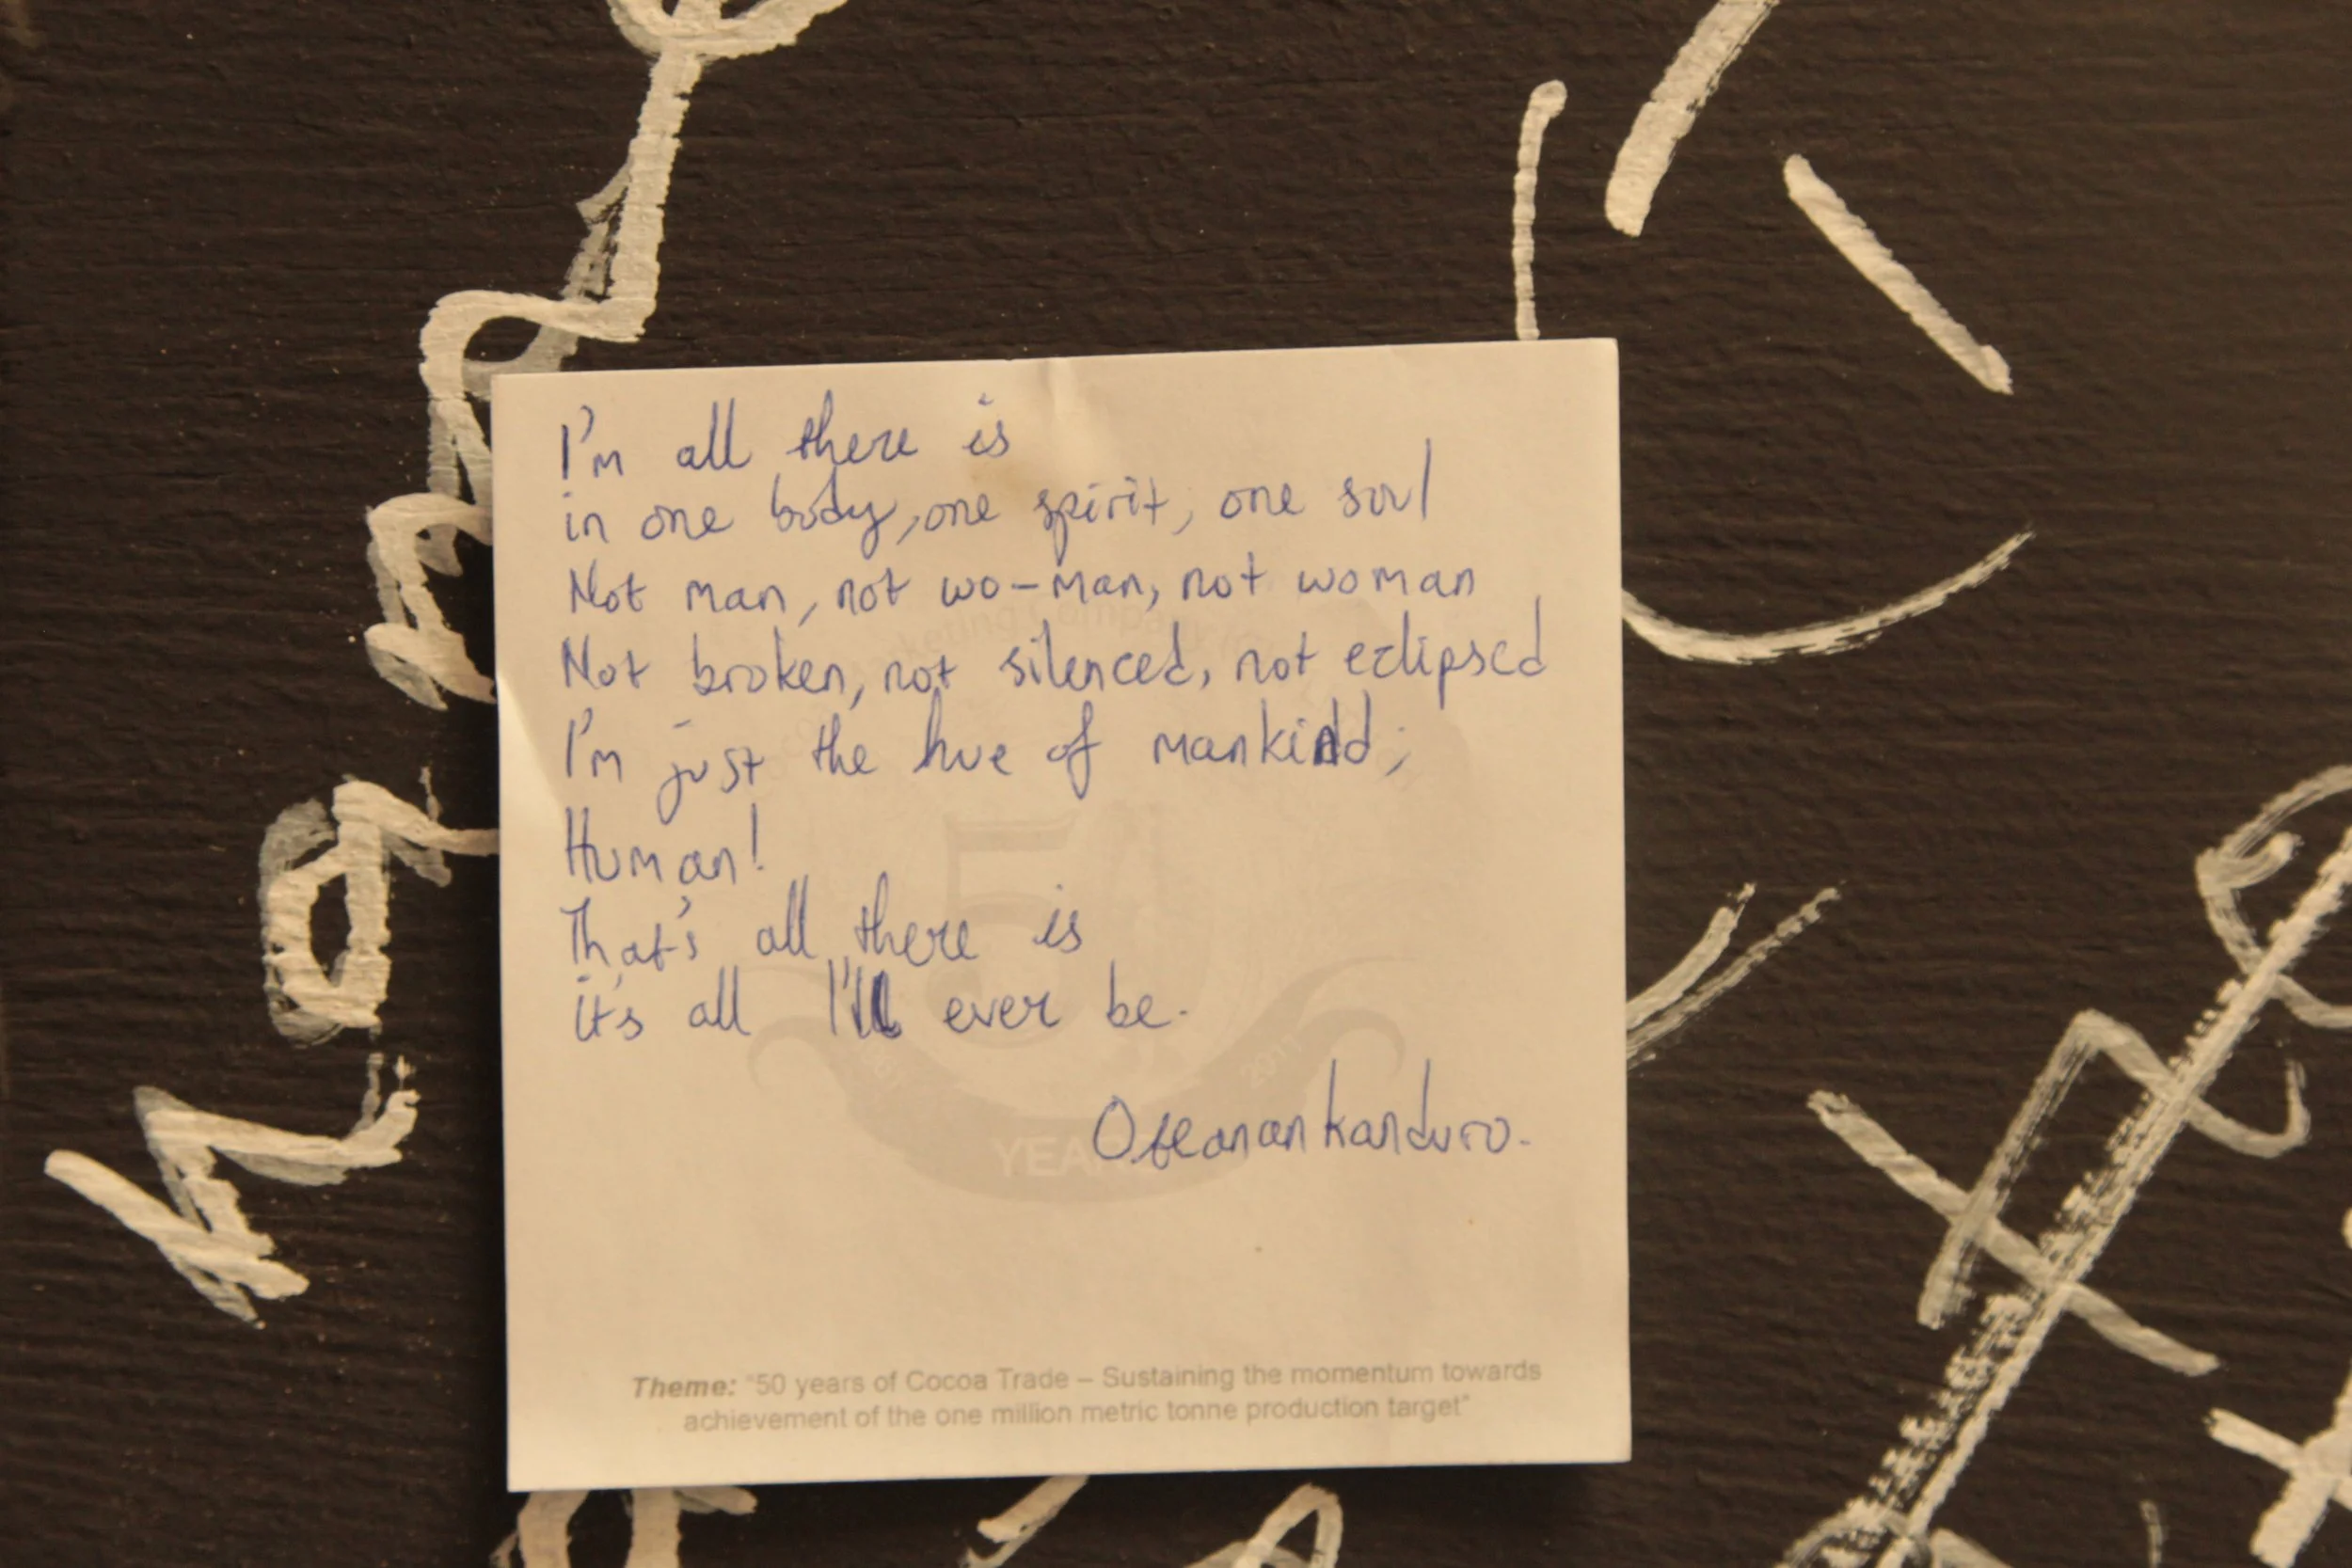 I'm all there is
in one body, one spirit, one soul
Not man, not wo-man, not woman
Not broken, not silenced, not eclipsed
I'm just the hue of mankind;
Human!
That's all there is
it's all I'll ever be.
Obeanankanduro.
Marketing Company
50
2011
YEA
Theme: "50 years of Cocoa Trade – Sustaining the momentum towards
achievement of the one million metric tonne production target"